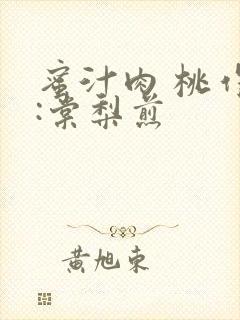 蜜汁肉 桃 作
:棠梨煎
黄旭东